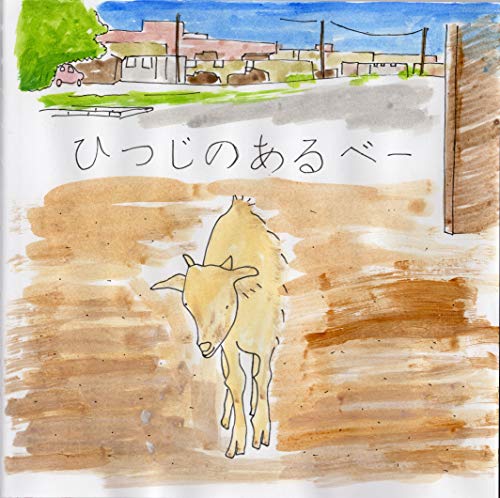 ひつじのあるべー